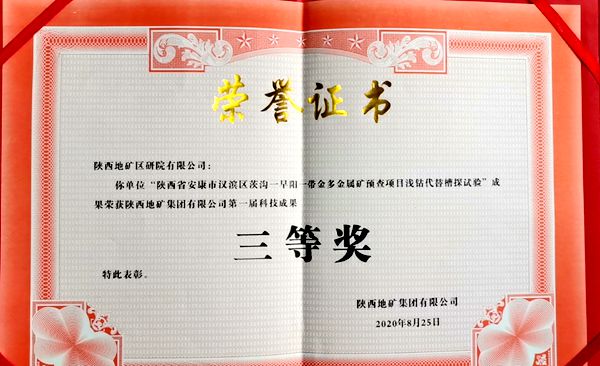 荣誉证书
陕西地矿区研院有限公司：
你单位“陕西省安康市汉滨区茨沟一早阳一带金多金属矿预查项目浅钻代替槽探试验”成
果荣获陕西地矿集团有限公司第一届科技成果
三等奖
特此表彰。
陕西地矿集团有限公司
2020年8月25日